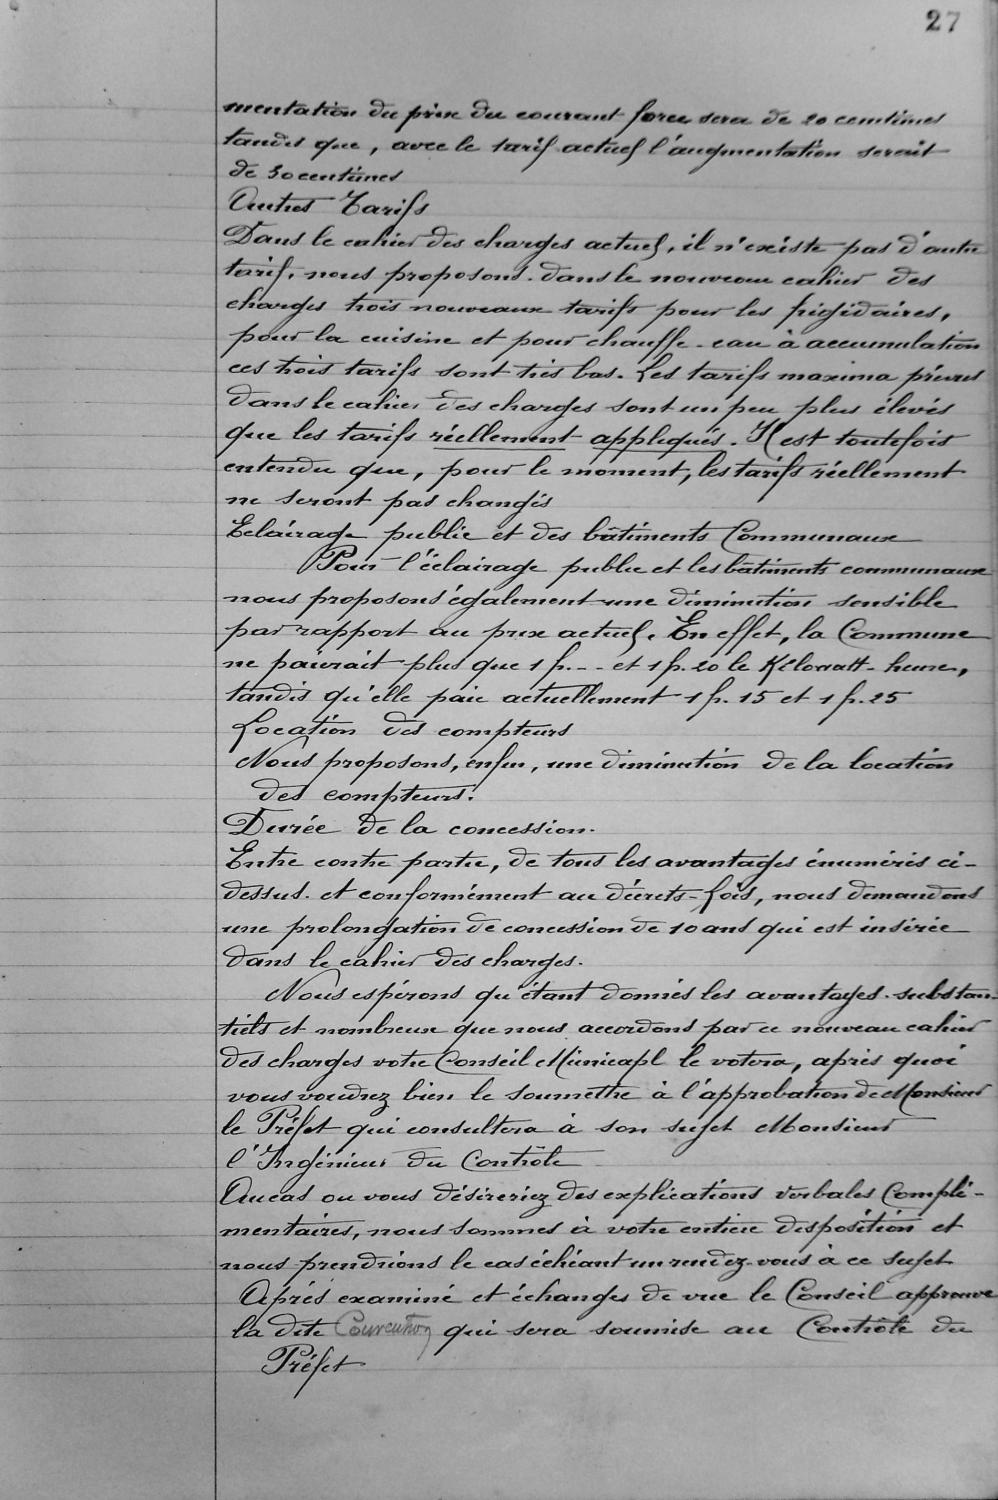 27
mentation du prix du courant force sera de 20 centimes
tandis que, avec le tarif actuel l'augmentation serait
de 50 centimes
Autres Tarifs
Dans le cahier des charges actuel, il n'existe pas d'autre
tarif, nous proposons dans le nouveau cahier des
charges trois nouveaux tarifs pour les frigidaires,
pour la cuisine et pour chauffe-eau à accumulation
ces trois tarifs sont très bas. Les tarifs maxima prévus
dans le cahier des charges sont un peu plus élevés
que les tarifs réellement appliqués. Il est toutefois
entendu que, pour le moment, les tarifs réellement
ne seront pas changés
Eclairage public et des bâtiments Communaux
Pour l'éclairage public et les bâtiments communaux
nous proposons également une diminution sensible
par rapport au prix actuel. En effet, la Commune
ne paierait plus que 1 f. -- et 1 f. 20 le Kilowatt-heure,
tandis qu'elle paie actuellement 1 f. 15 et 1 f. 25
Location des compteurs
Nous proposons, enfin, une diminution de la location
des compteurs.
Durée de la concession.
Entre contre partie, de tous les avantages énumérés ci-
dessus. et conformément au décrets-lois, nous demandons
une prolongation de concession de 10 ans qui est insérée
dans le cahier des charges.
Nous espérons qu'étant donnés les avantages substan-
tiels et nombreux que nous accordons par ce nouveau cahier
des charges votre Conseil Municapl le votera, après quoi
vous voudrez bien le soumettre à l'approbation de Monsieur
le Préfet qui consultera à son sujet Monsieur
l'Ingénieur du Contrôle
Au cas ou vous désireriez des explications verbales complé-
mentaires, nous sommes à votre entière disposition et
nous prendrions le cas échéant un rendez-vous à ce sujet
Après examiné et échanges de vue le Conseil approuve
la dite Convention qui sera soumise au Contrôle du
Préfet